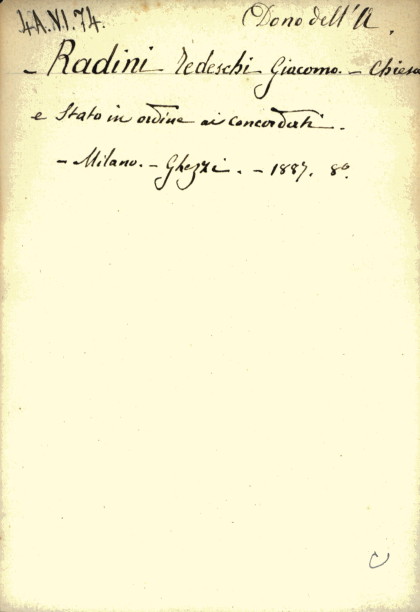 4A.VI.74. Dono dell'A.
- Radini Tedeschi Giacomo. - Chiesa
e Stato in ordine ai concordati.
- Milano. - Ghezzi. - 1887. 8º.
C